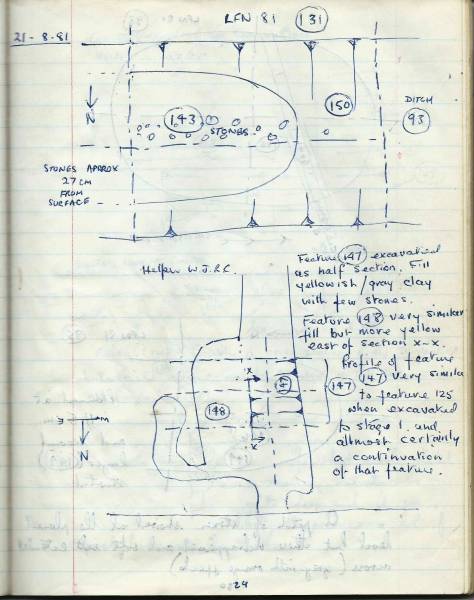 LFN 81 131
21-8-81
N
143
STONES
150
DITCH
93
STONES APPROX
27CM
FROM
SURFACE
Helper W.J.R.C.
Feature 147 excavated
as half section. Fill
yellowish/gray clay
with few stones.
Feature 148 very similar
fill but more yellow
east of section x-x.
Profile of feature
147 very simila
to feature 125
when excavated
to stage 1. and
allmost certainly
a continvation
of that feature.
147
147
148
x
x
N
29